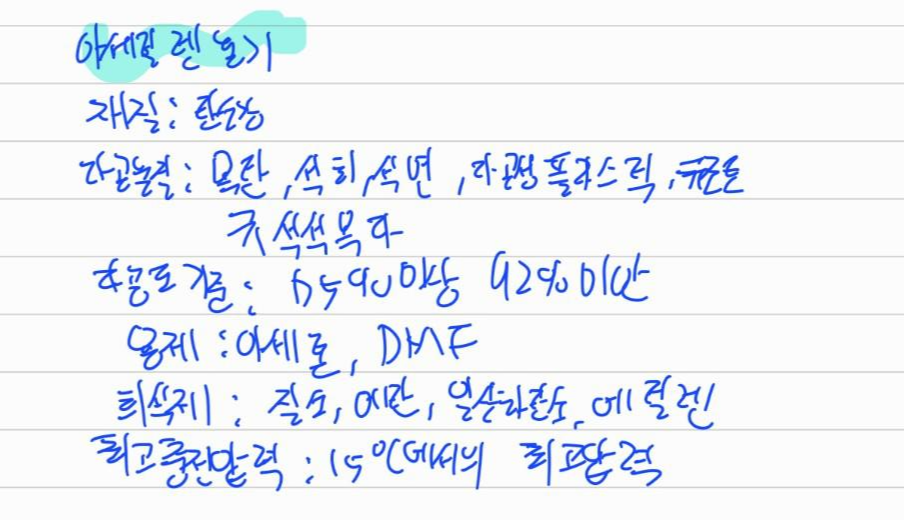 아세틸렌 용기
재질 : 탄소강
다공물질 : 목탄, 석회, 석면, 다공성플라스틱, 규조토
석석목다
다공도 기준 : 75%이상 92%미만
용제 : 아세톤, DMF
희석제 : 질소, 메탄, 일산화탄소, 에틸렌
최고충전압력 : 15℃에서의 최고압력